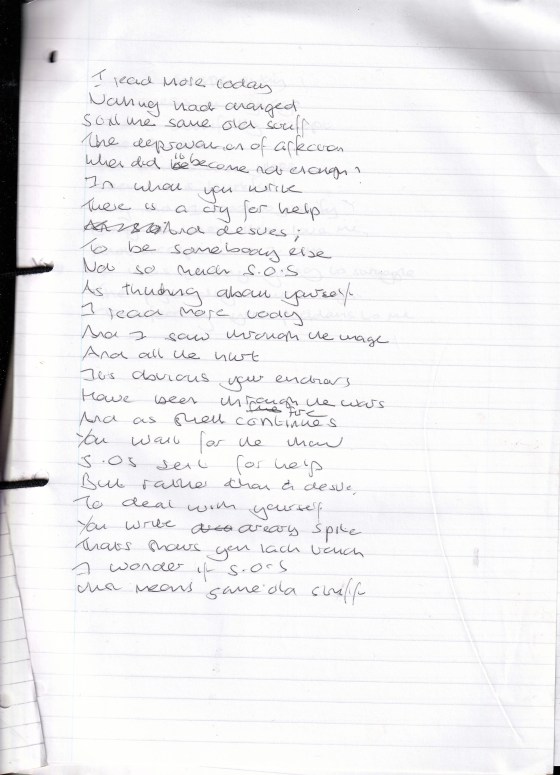 I read more today
Nothing had changed
Still the same old stuff
The deprevation of affection
When did it become not enough?
In what you write
There is a cry for help
And desires;
To be somebody else
Not so much S.O.S
As thinking about yourself
I read more today
And I saw through the image
And all the hurt
It's obvious your
Have been through the wars
And as the continues
You wait for the
S.O.S sent for help
But rather than a desire
To deal with yourself
You write spite
Thats shows you lack
I wonder if S.O.S
Just means same old stuff